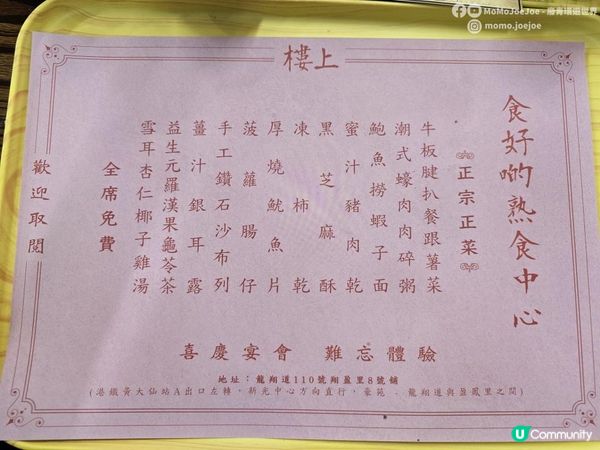 MoMoJoeJoe - 廢青環遊世界
momo.joejoe
樓上
食好啲熟食中心
正宗正菜
牛板腱扒餐跟薯菜
潮式蠔肉肉碎粥
鮑魚撈蝦子面
蜜汁豬肉乾
黑芝麻酥
凍柿乾
厚燒魷魚片
菠蘿腸仔
手工鑽石沙布列
薑汁銀耳露
益生元羅漢果龜苓茶
雪耳杏仁椰子雞湯
全席免費
歡迎取閱
喜慶宴會 難忘體驗
地址：龍翔道110號翔盈里8號舖
(港鐵黃大仙站A出口左轉，新光中心方向直行，豪苑 - 龍翔道與盈鳳里之間)
U Community